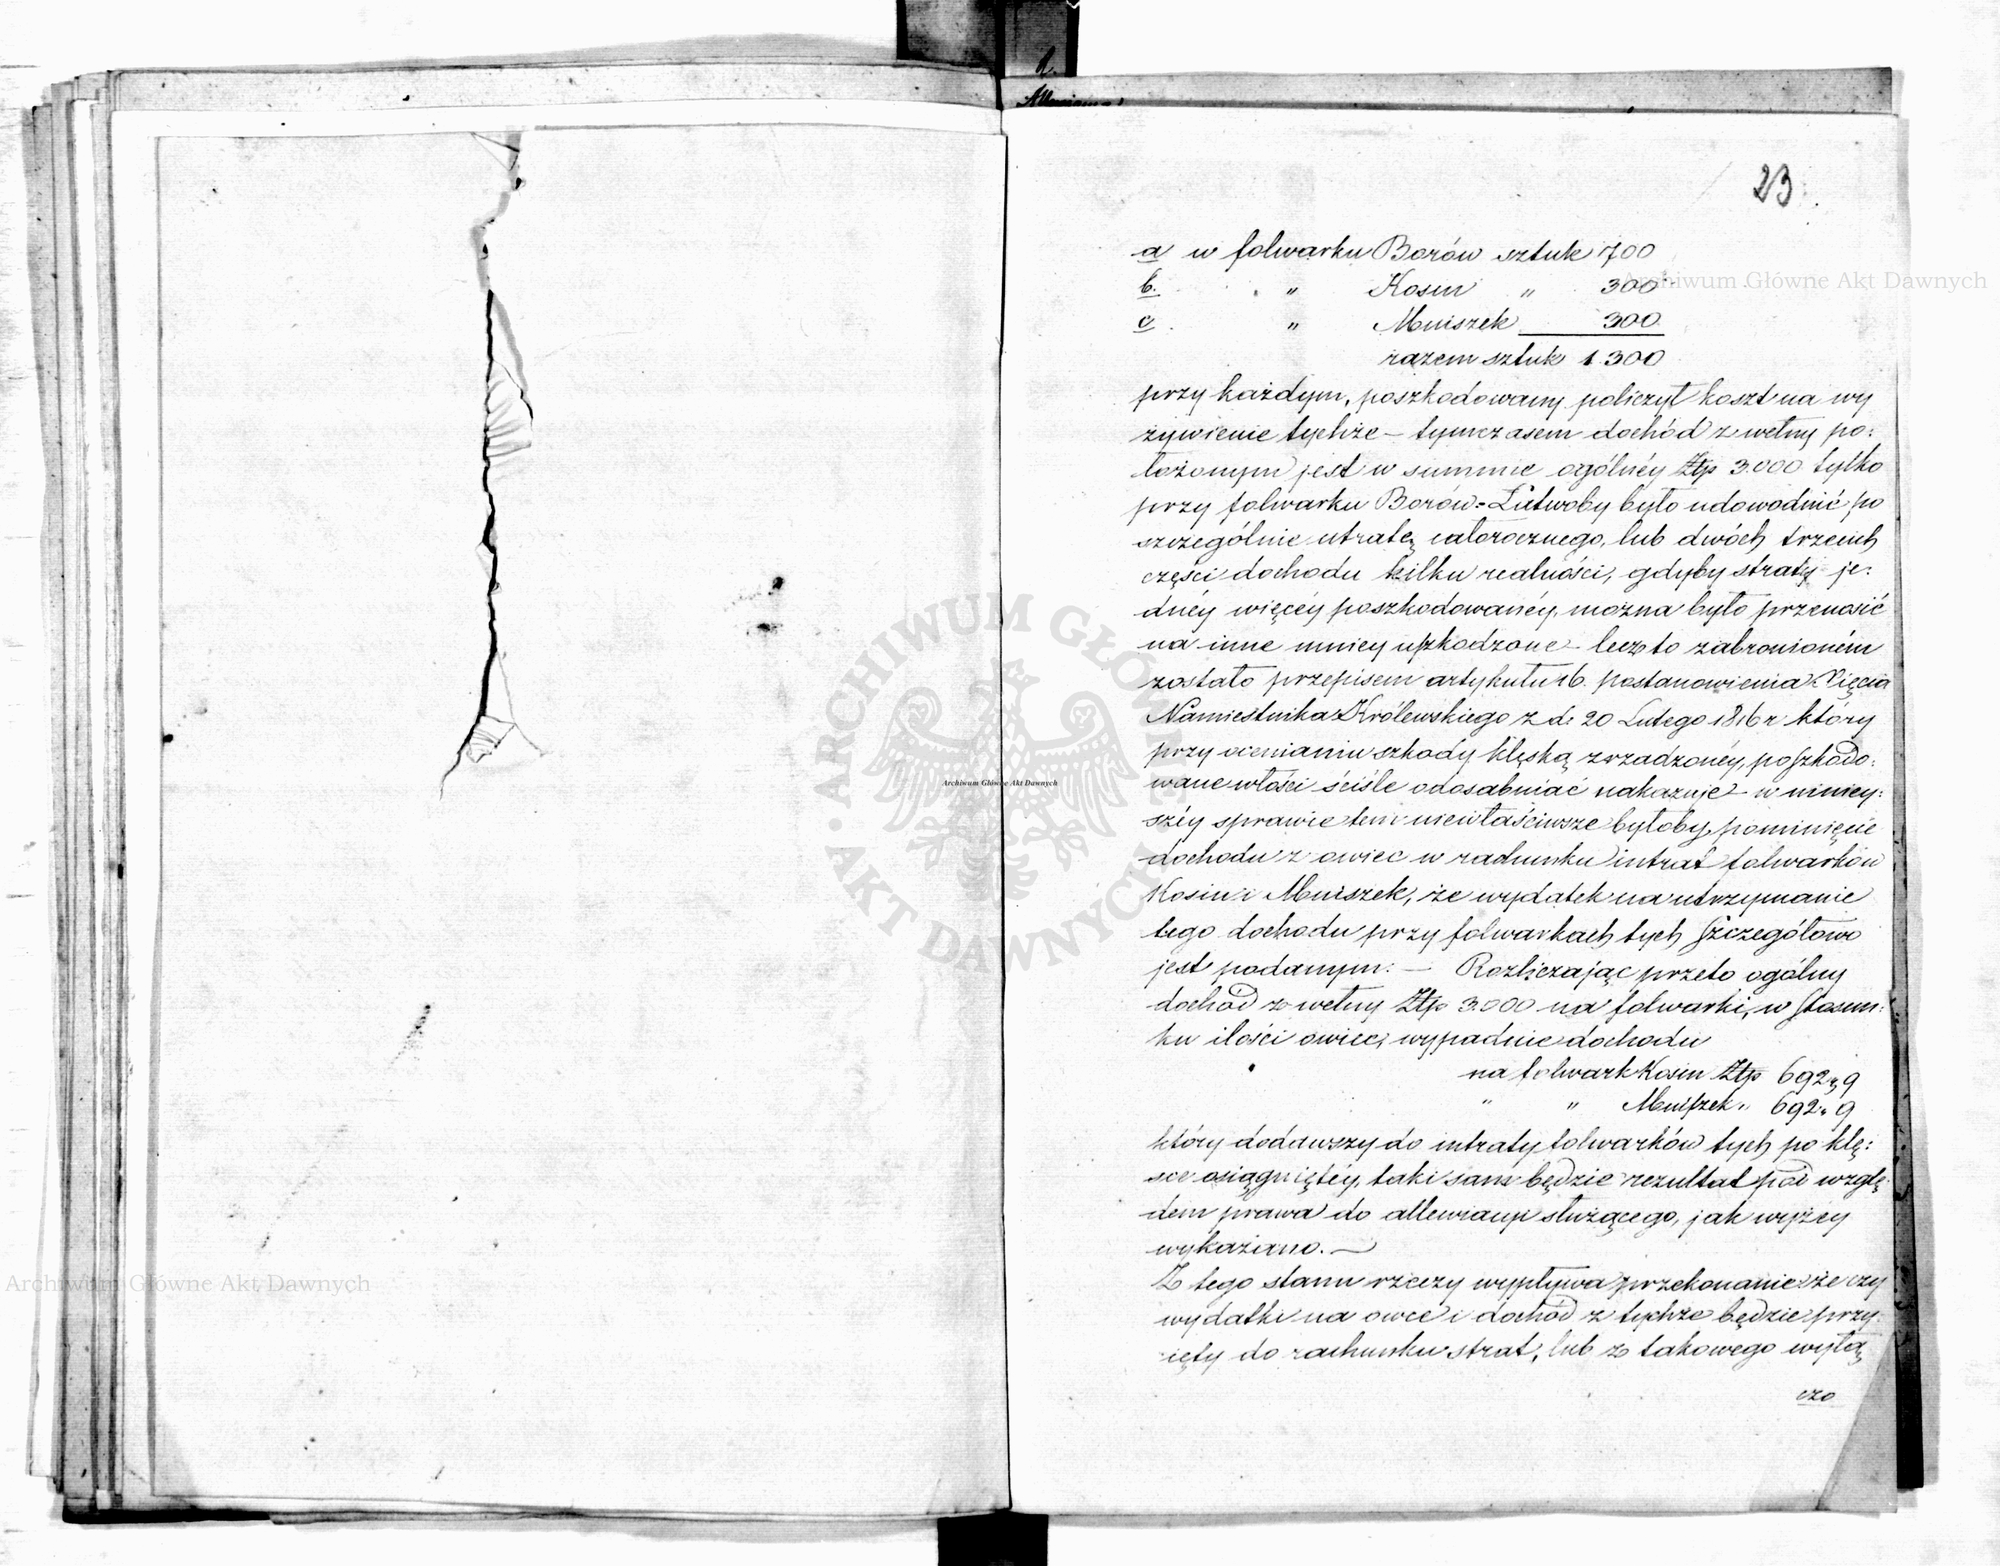 23
a w folwarku Borów sztuk 700
b. " Kosin " 300
c. " Mniszek 300
razem sztuk 1300
przy każdym, poszkodowany policzył koszt na wy
żywienie tychże – tymczasem dochód z wełny po:
łożonym jest w summie ogólnéy Złp 3.000 tylko
przy folwarku Borów. – Łatwoby było udowodnić po
szczególnie utratę całorocznego, lub dwóch trzecich
części dochodu kilku realności, gdyby stratę je:
dnéy więcéy poszkodowanéy, można było przenosić
na inne mniey uszkodzone – lecz to zabronioném
zostało przepisem artykułu 16. postanowienia Xięcia
Namiestnika Królewskiego z d: 20 Lutego 1816 r. który
przy ocenianiu szkody klęską zrządzonéy, poszkodo:
wane włości ściśle odosabniać nakazuje – w niniey:
széy sprawie tem niewłaściwsze byłoby pominięcie
dochodu z owiec w rachunku intrat folwarków
Kosin i Mniszek, że wydatek na utrzymanie
tego dochodu przy folwarkach tych szczegółowo
jest podanym: – Rozliczając przeto ogólny
dochód z wełny Złp 3.000 na folwarki, w stosun:
ku ilości owiec, wypadnie dochodu
na folwark Kosin Złp 692 „ 9
" " Mniszek „ 692 „ 9
który dodawszy do intraty folwarków tych po klę:
sce osiągniętéy, taki sam będzie rezultat pod wzglę:
dem prawa do allewiacyi służącego, jak wyżey
wykazano. –
Z tego stanu rzeczy wypływa przekonanie: że czy
wydatki na owce i dochód z tychże będzie przy
ięty do rachunku strat, lub z takowego wyłą
czo
Archiwum Główne Akt Dawnych
Archiwum Główne Akt Dawnych
Archiwum Główne Akt Dawnych
ARCHIWUM GŁÓWNE · AKT DAWNYCH